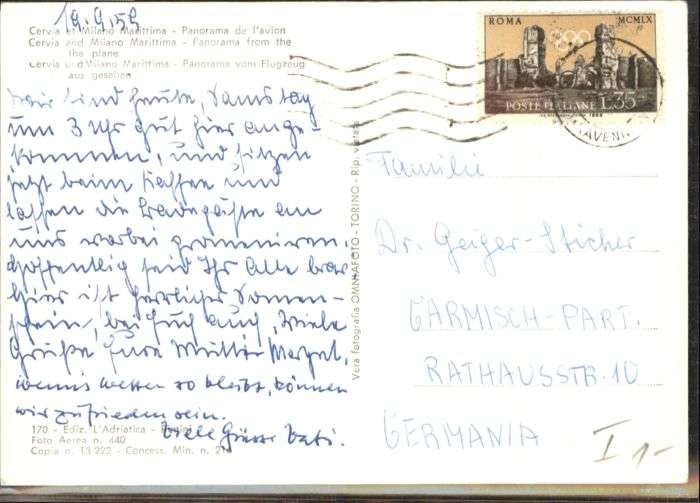 19.9.59
Cervia et Milano Marittima - Panorama de l'avion
Cervia and Milano Marittima - Panorama from the
the plane
Cervia und Milano Marittima - Panorama vom Flugzeug
aus gesehen
ROMA MCMLX
POSTE ITALIANE L.35
RAVENN
Wir sind heute, Samstag
um 3 Uhr gut hier ange-
kommen, und sitzen
jetzt beim Kaffee und
lassen die Badegäste an
uns vorbei promenieren.
Hoffentlig seid Ihr Alle brav
hier ist herrlicher Sonnen-
schein, bei Euch auch, Viele
Grüße Eure Mutter
wenns Wetter so bleibt, können
wir zufrieden sein.
Viele Grüsse Vati.
Vera fotografia OMNIAFOTO - TORINO - Rip. vietata
Familie
Dr. Geiger-Sticher
GARMISCH-PART.
RATHAUSSTR. 10
GERMANIA
I 1-
170 - Ediz. L'Adriatica - Rimini
Foto Aerea n. 440
Copia n. 13222 - Concess. Min. n.